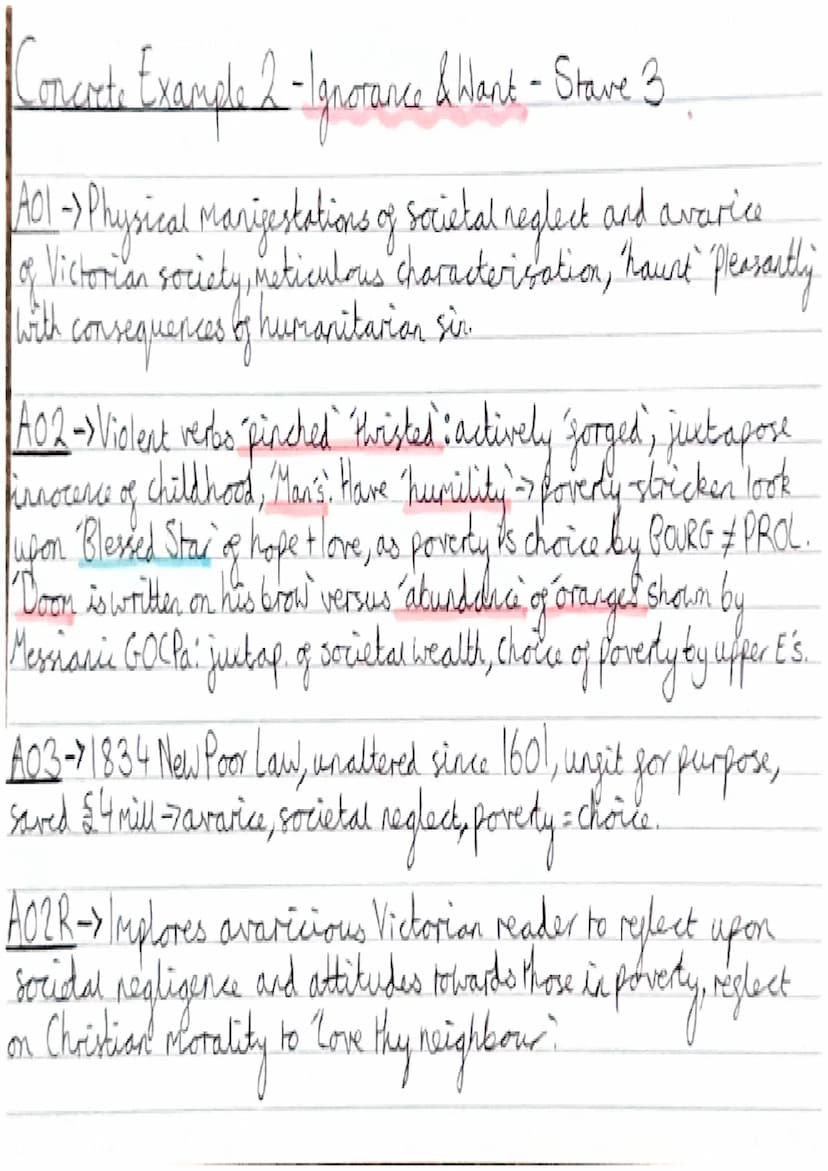 Concrete Example 2 - Ignorance & Want - Stave 3
A01 -> Physical manifestations of societal neglect and avarice
of Victorian society, meticulous characterisation, 'haunt' 'pleasantly'
with consequences of humanitarian sin.
A02 -> Violent verbs 'pinched' 'twisted': actively 'forged', juxtapose
innocence of childhood, 'Man's'. Have 'humility' -> poverty-stricken look
upon 'Blessed Star' of hope + love, as poverty is choice by BOURG ≠ PROL.
'Doom is written on his brow' versus 'abundance' of 'oranges' shown by
Messianic GOCPa: juxtap. of societal wealth, choice of poverty by upper E's.
A03 -> 1834 New Poor Law, unaltered since 1601, unfit for purpose,
saved £4 mill -> avarice, societal neglect, poverty = choice.
A02R -> Implores avaricious Victorian reader to reflect upon
societal negligence and attitudes towards those in poverty, reflect
on Christian Morality to 'love thy neighbour'.